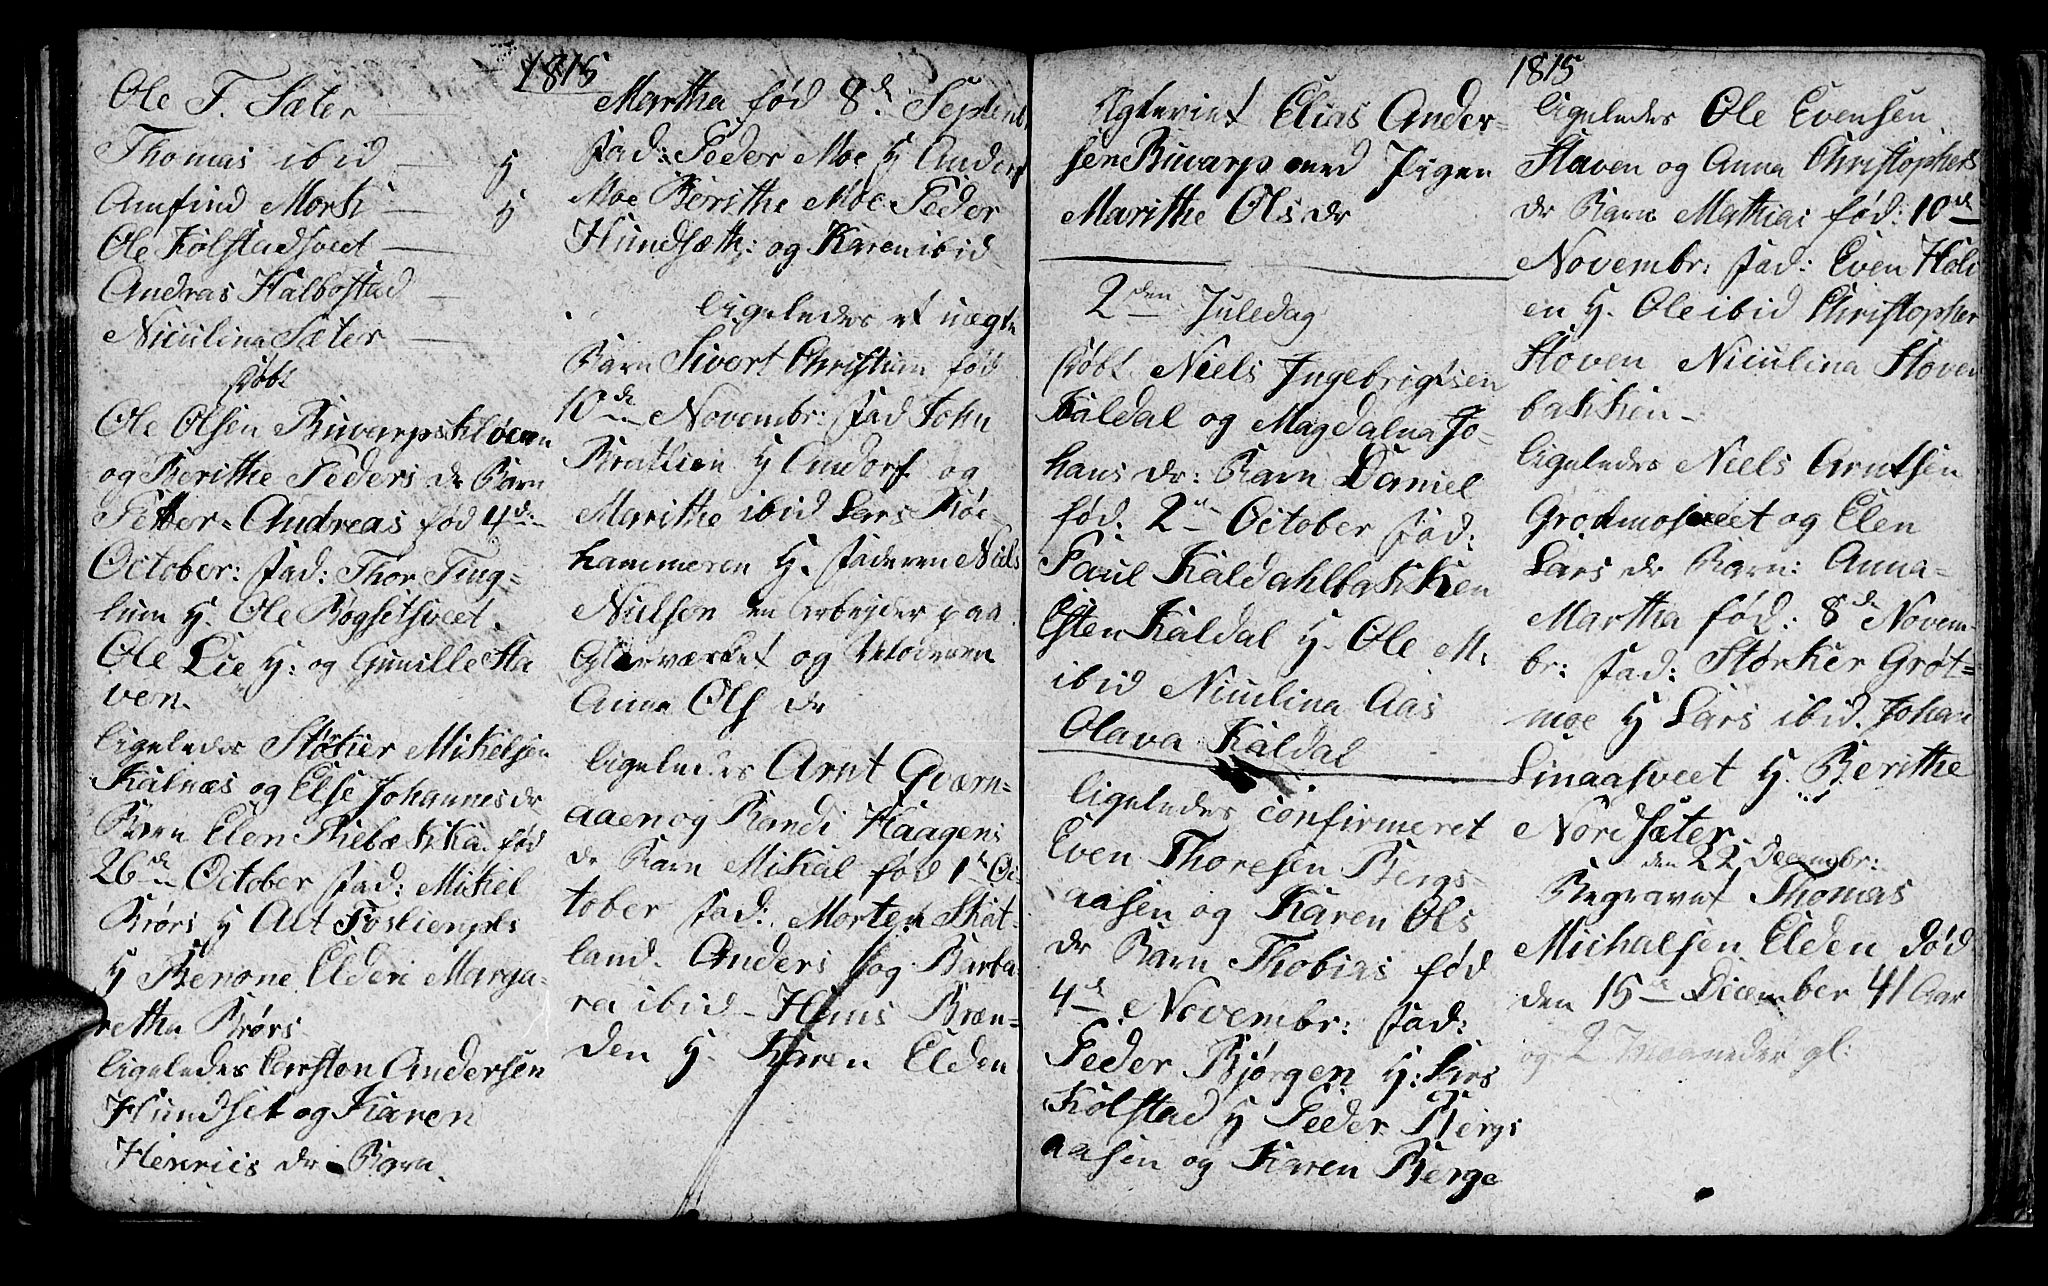 1815
Ole T. Sæter
Thomas ibid — H
Arnfind Mork — H
Ole Kolstadsveet
Andras Halbostad
Niculina Sæter
døbt
Ole Olsen Buvarps
og Berithe Peders dr Barn
Petter-Andreas fød 4d.
October: fad: Thor Ting-
lum H. Ole Bøgsetsveet.
Ole Lie H: og Gunille Sta
ven.
ligeledes Størker Mikelsen
Kalnæs og Else Johannes dr
Barn Elen Rebækka fød
26de October fad: Mikel
Brørs H Alt
H Berone Elden Marga-
retha Brørs
ligeledes Carsten Andersen
Hundset og Karen
Henrics dr Barn.
Martha fød 8d. Septembr
fad: Peder Moe H Anders
Moe Berithe Moe Peder
Hundsæth: og Karen ibid
ligeledes et uægte
Barn Sivert Christian fød
10de Novembr: fad John
Bratlien H Andorf og
Marithe ibid Lars
hammeren H. faderen Niels
Nielsen en arbeider paa
værket og Moderen
Anna Ols dr
ligeledes Arnt Qværn-
aaen og Randi Haagens
dr Barn Mikal fød 1d Oc-
tober fad: Morten Skat-
land. Anders og Barba-
ra ibid – Hans Bræn-
den H. Karen Elden
Egteviet Elias Ander-
sen Buvarp med Pigen
Marithe Ols dr
2den Juledag
døbt Niels Ingebrigtsen
Kaldal og Magdalna Jo-
hans dr: Barn Daniel
fød: 2de October fad:
Paul Kaldahlbakken
Esten Kaldal H. Ole M.
ibid Niculina Aas
Olava Kaldal
ligeledes confirmeret
Even Thoresen Bergs-
aasen og Karen Ols
dr Barn Thobias fød
4de Novembr: fad:
Peder Bjørgen H: Lars
Kolstad H Peder Bergs
aasen og Karen Berge
1815
ligeledes Ole Evensen
Staven og Anna Christophers
dr Barn Mathias fød: 10de
Novembr: fad: Even Hall
en H. Ole ibid Christopher
Staven Niculina Staven
bakken –
ligeledes Niels Arntsen
Grødmosveet og Elen
Lars dr Barn: Anna-
Martha fød: 8de Novem-
br: fad: Størker Grøt-
moe H Lars ibid. Johan
Linaasveet H. Berithe
Nordsæter.
den 22 Decembr:
Begravet Thomas
Michalsen Elden død
den 15de December 41 Aar
og 2 Maaneder gl: